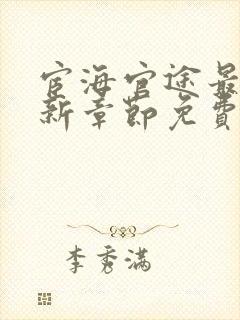 宦海官途最
新章节免费
李秀满